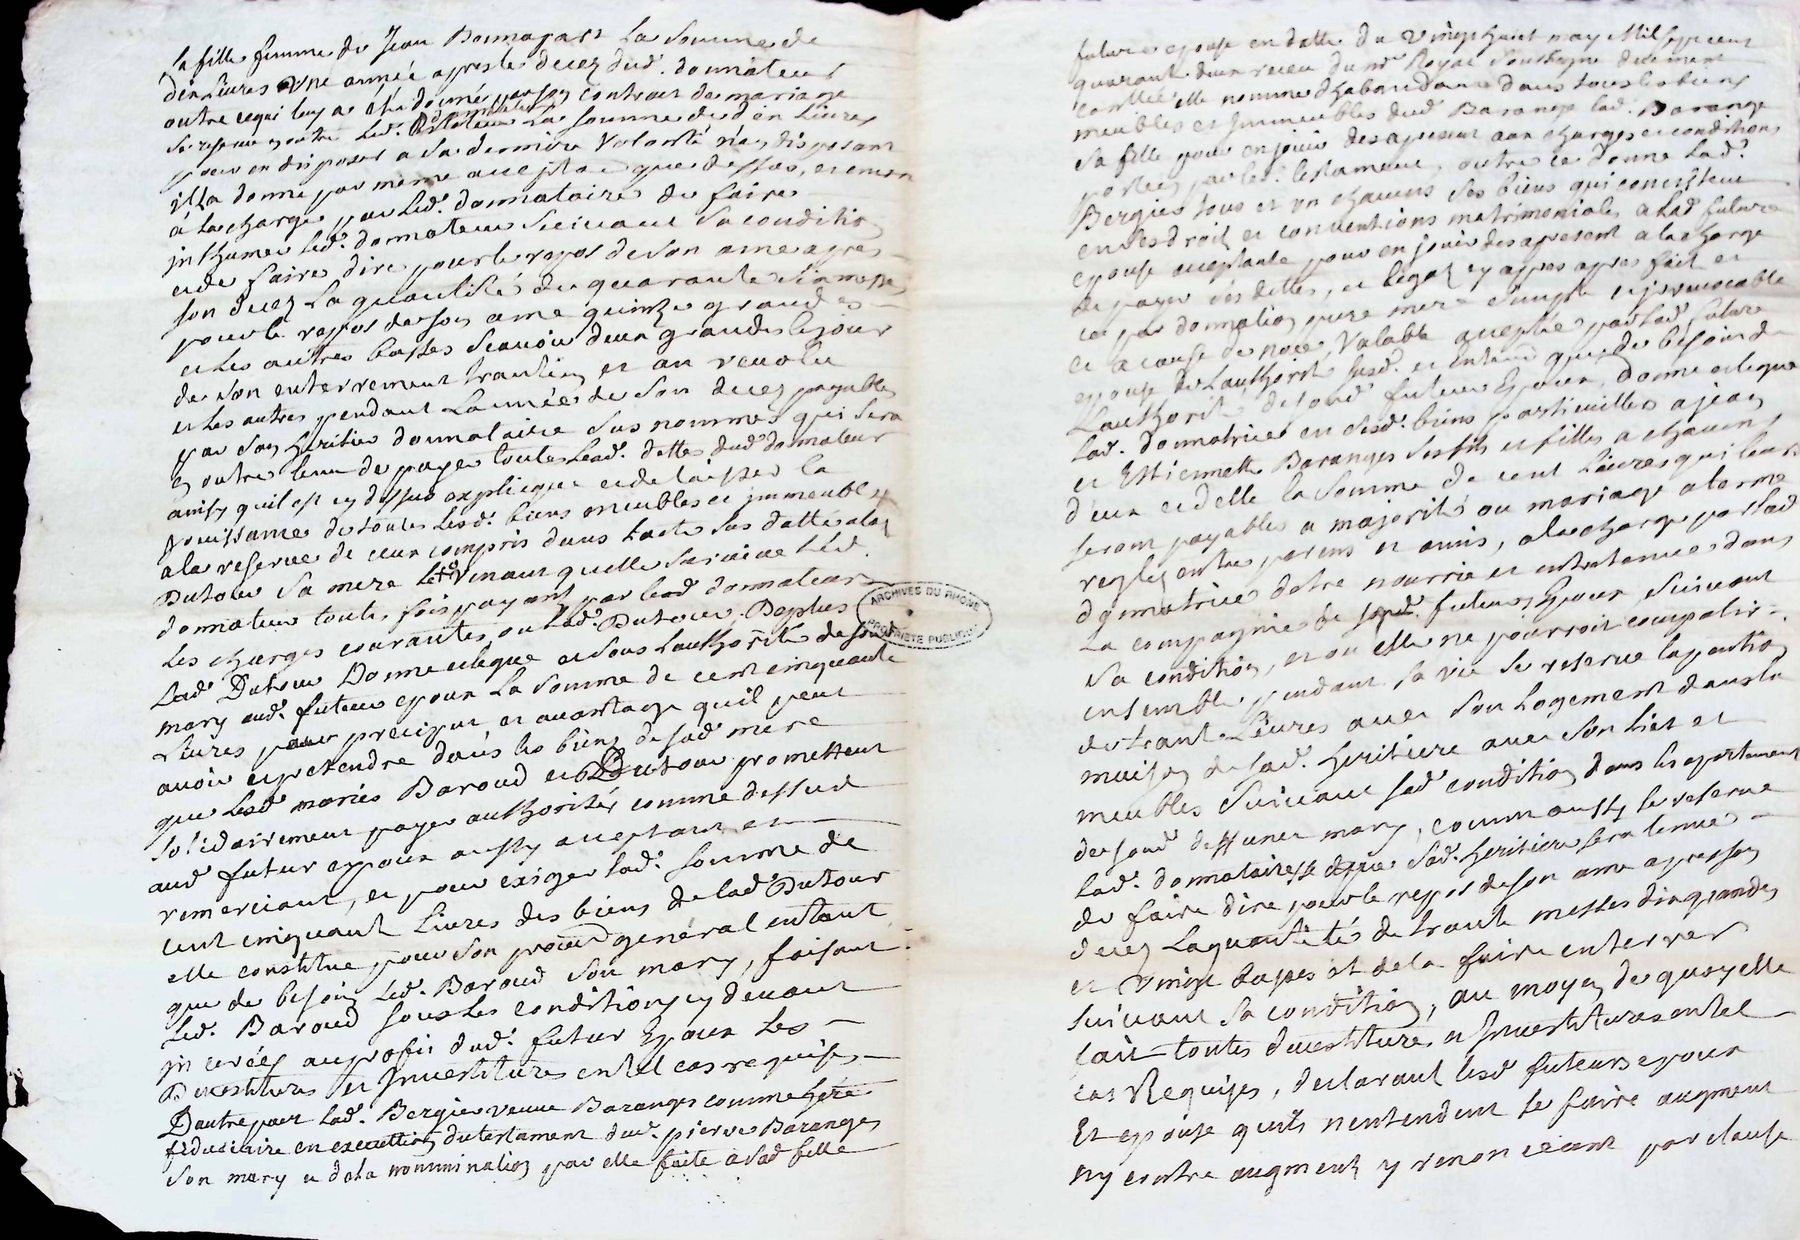 sa fille femme de Jean Bonnayart La somme de
dix Livres une année apres le decez dud. donnateur
outre ce qui luy a été donné par son contrat de mariage
se reserve en outre led. donnateur La somme de dix Livres
pour en disposer a sa derniere Volonté n'en disposant
il la donne par meme que dessus, et encor
a la charge par led. donnataire de faire
inhumer led. donnateur suivant sa condition
et de faire dire pour le repos de son ame apres
son decez La quantité de quarante messes
pour le repos de son ame quinze grandes
et les autres basses scavoir deux grandes le jour
de son enterrement trantin et au revolu
et les autres pendant L'année de son decez payables
par son heritier donnataire sus nommé qui sera
en outre tenu de payer toutes lesd. dettes dud. donnateur
ainsy quil est cy dessus explicque et de laisser la
jouissance de toutes lesd. biens meubles et immeubles
a la reserve de ceux compris dans L'acte sus datté a lad.
Dutour sa mere venant quelle survive led.
donnateur toutes fois payant par led. donnateur
Les charges courantes, ou lad. Dutour. De plus
Lad. Dutour Donne et legue et sous L'authorité de sond.
mary aud. futur epoux La somme de cent cinquante
Livres pour precipu et avantage quil peut
avoir et pretendre dans les biens de sad. mere
que lesd. mariés Baroud et Dutour promettent
solidairement payer authorisée comme dessus
aud. futur epoux aussy acceptant et
remerciant, et pour exiger lad. somme de
cent cinquante Livres des biens de lad. Dutour
elle constitue pour son procur. general entant
que de besoin led. Baroud son mary, faisant
led. Baroud sous les conditions cy devant
inserées au profit dud. futur Epoux Les
Devestitures et Investitures entel cas requises
D'autre part lad. Bergier veuve Baranges comme here
fiduciaire en execution du testament dud. pierre Baranges
son mary et de la nommination par elle faite a sad. fille
future epouse en datte du vingt huit may Mil sept cent
quarante deux receu du me. Royal Soussigné deüement
contllée elle nomme et habandonne dans tous les biens
meubles et immeubles dud. Barange lad. Barange
sa fille pour en jouir des apresent aux charges et conditions
portées par led. testament, outre ce donne Lad.
Bergier tous et un chacuns ses biens qui consistent
en ses droits et conventions matrimoniales a lad. future
epouse acceptante pour en jouir des apresent a la charge
de payer ses dettes, et legat cy apres apres fait et
ce par donnation pure mere simple et irrevocable
et a cause de noce Valable acceptée par lad. future
epouse de L'authorité susd. et entant que de besoin de
L'authorité de sond. futur Epoux, donne et legue
Lad. donnatrice en sesd. biens particuilles a jean
et Ettiennette Baranges ses fils et filles a chacun
d'eux et d'elle la somme de cent Livres qui leurs
seront payables a majorité ou mariage a terme
reglés entre parens et amis, a la charge par lad.
donnatrice detre nourrie et entretenue dans
La compagnie de sond. futur Epoux suivant
sa condition, et ou elle ne pourroit compatir
ensemble pendant sa vie se reserve la pention
de trante Livres avec son Logement dans la
maison de sad. heritiere avec son lict et
meubles suivant sad. condition dans les apartement
de sond. deffunct mary, comm aussy se reserve
Lad. donnatairesse que sad. heritiere sera tenue
de faire dire pour le repos de son ame apres son
decez La quantités de trante messes dix grandes
et Vingt basses et de la faire enterrer
suivant sa condition, au moyen de quoy elle
fait toutes devestitures et Investitures entel
cas Requises, declarant lesd. futurs epoux
Et epouse quils nentendent se faire augment
ny contre augment y renonceant par clause
ARCHIVES DU RHONE
PROPRIETE PUBLIQUE